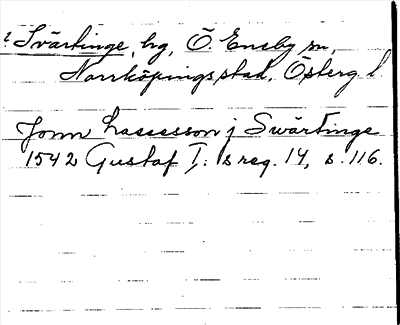 ? Svärtinge, hg, Ö. Eneby sn,
Norrköpings stad, Österg l.
Jonn Lassesson j Swärtinge
1542 Gustaf I: s reg. 14, s. 116.